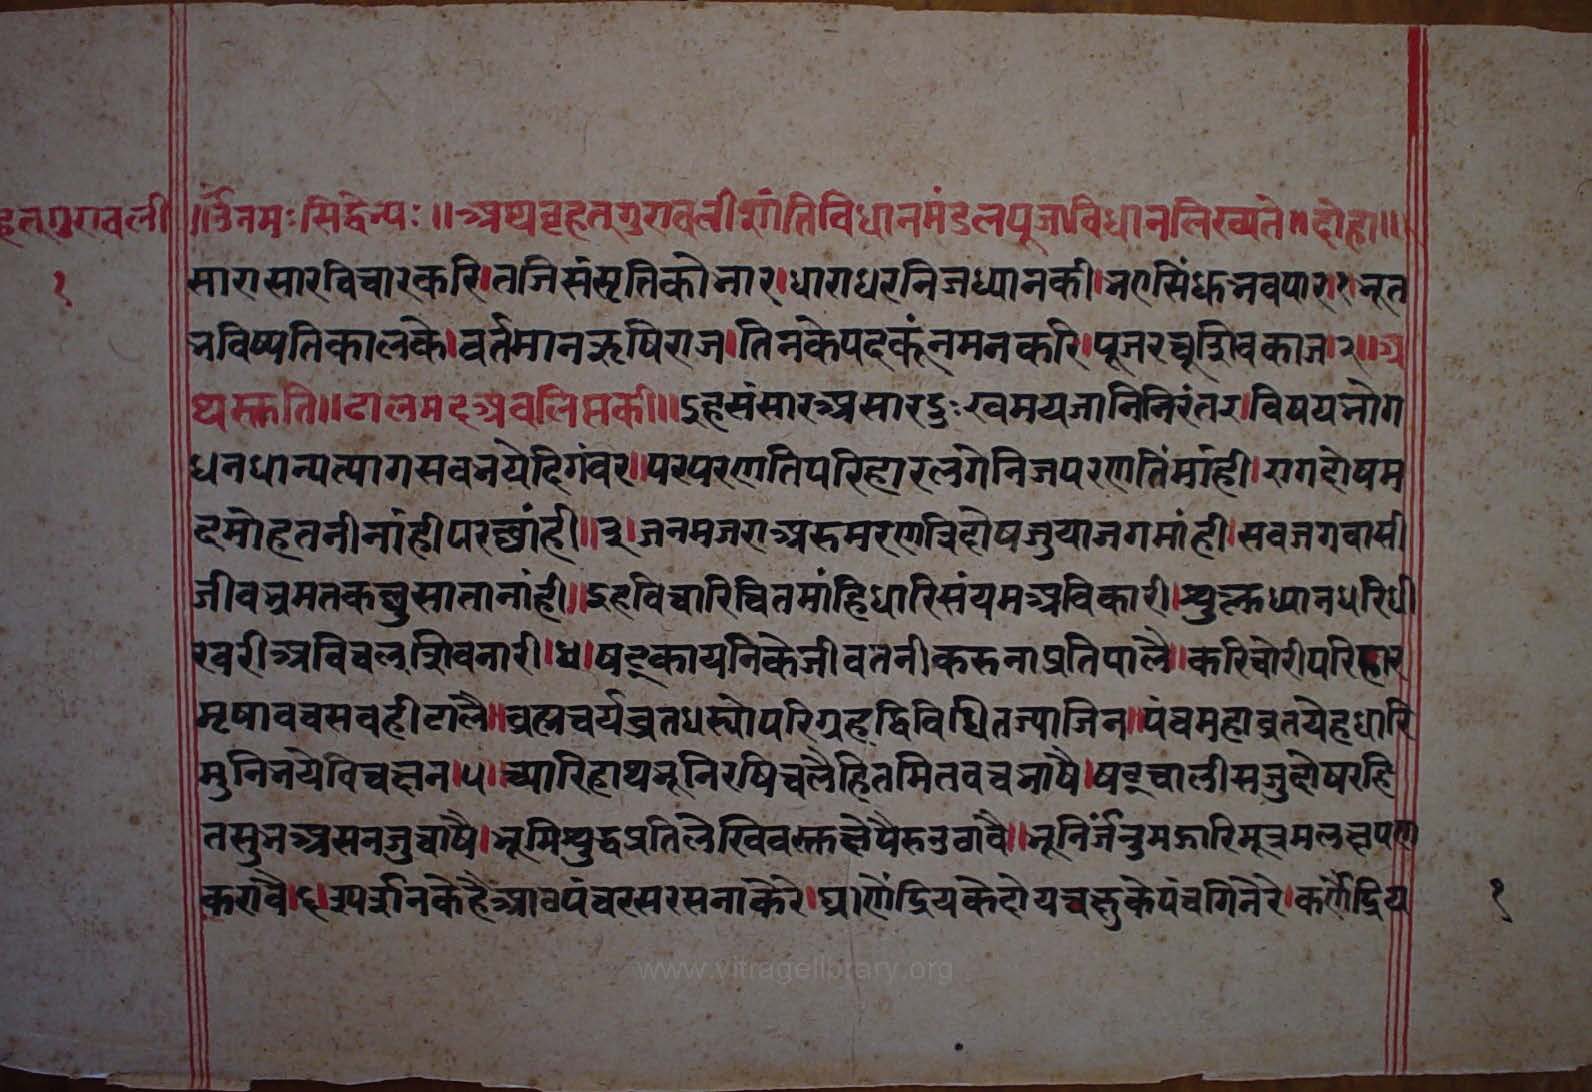 हतगुरावली ॥ ॐनमः सिद्धेभ्यः ॥ अथबृहत्गुरावलीशांतिविधानमंडलपूजाविधानलिख्यते ॥ दोहा ॥
१
सारासारविचारकरि । तजिसंसृतिकोभार । धाराधरनिजध्यानकी । भएसिंधुभवपार १ भूत
भविष्यतिकालके । वर्तमानऋषिराज । तिनकेपदकूंनमनकरि । पूजरचूशिवकाज २ ॥ अ
थस्तुति ॥ ढालमदअवलिप्तकी ॥ इहसंसारअसारदुःखमयजानिनिरंतर । विषयभोग
धनधान्यत्यागसवभयेदिगंवर ॥ परपरणतिपरिहारलगेनिजपरणतिंमांही । रागदोषम
दमोहतनीनांहीपरछांही ॥ ३ जनमजराअरुमरणत्रिदोषजुयाजगमांही । सवजगवासी
जीवभ्रमतकछुसातानांही ॥ इहविचारिचितमांहिधारिसंयमअविकारी । शुक्लध्यानधरिधी
रवरीअविचलशिवनारी । ४ । षट्कायनिकेजीवतनीकरुनाप्रतिपालै । करिचोरीपरिहार
मृषावचसवहीटालै ॥ ब्रह्मचर्यव्रतधस्योपरिग्रहद्विविधितज्याजिन ॥ पंचमहाव्रतयेहधारि
मुनिभयेविचछन । ५ । च्यारिहाथभूनिरषिचलैहितमितवचभाषै । षट्चालीसजुदोषरहि
तसुभअसनजुचाषै । भूमिशुद्धप्रतिलेखिवस्तछेपैरुउवावै ॥ भूनिर्जंतुमझारिमूत्रमलछपण
करावै । ६ । स्पर्शनकेहैआठपंचरसरसनाकेरे । घ्राणेंद्रियकेदोयचछुकेपंचगिनेरे । कर्णेंद्रिय
१
www.vitragelibrary.org